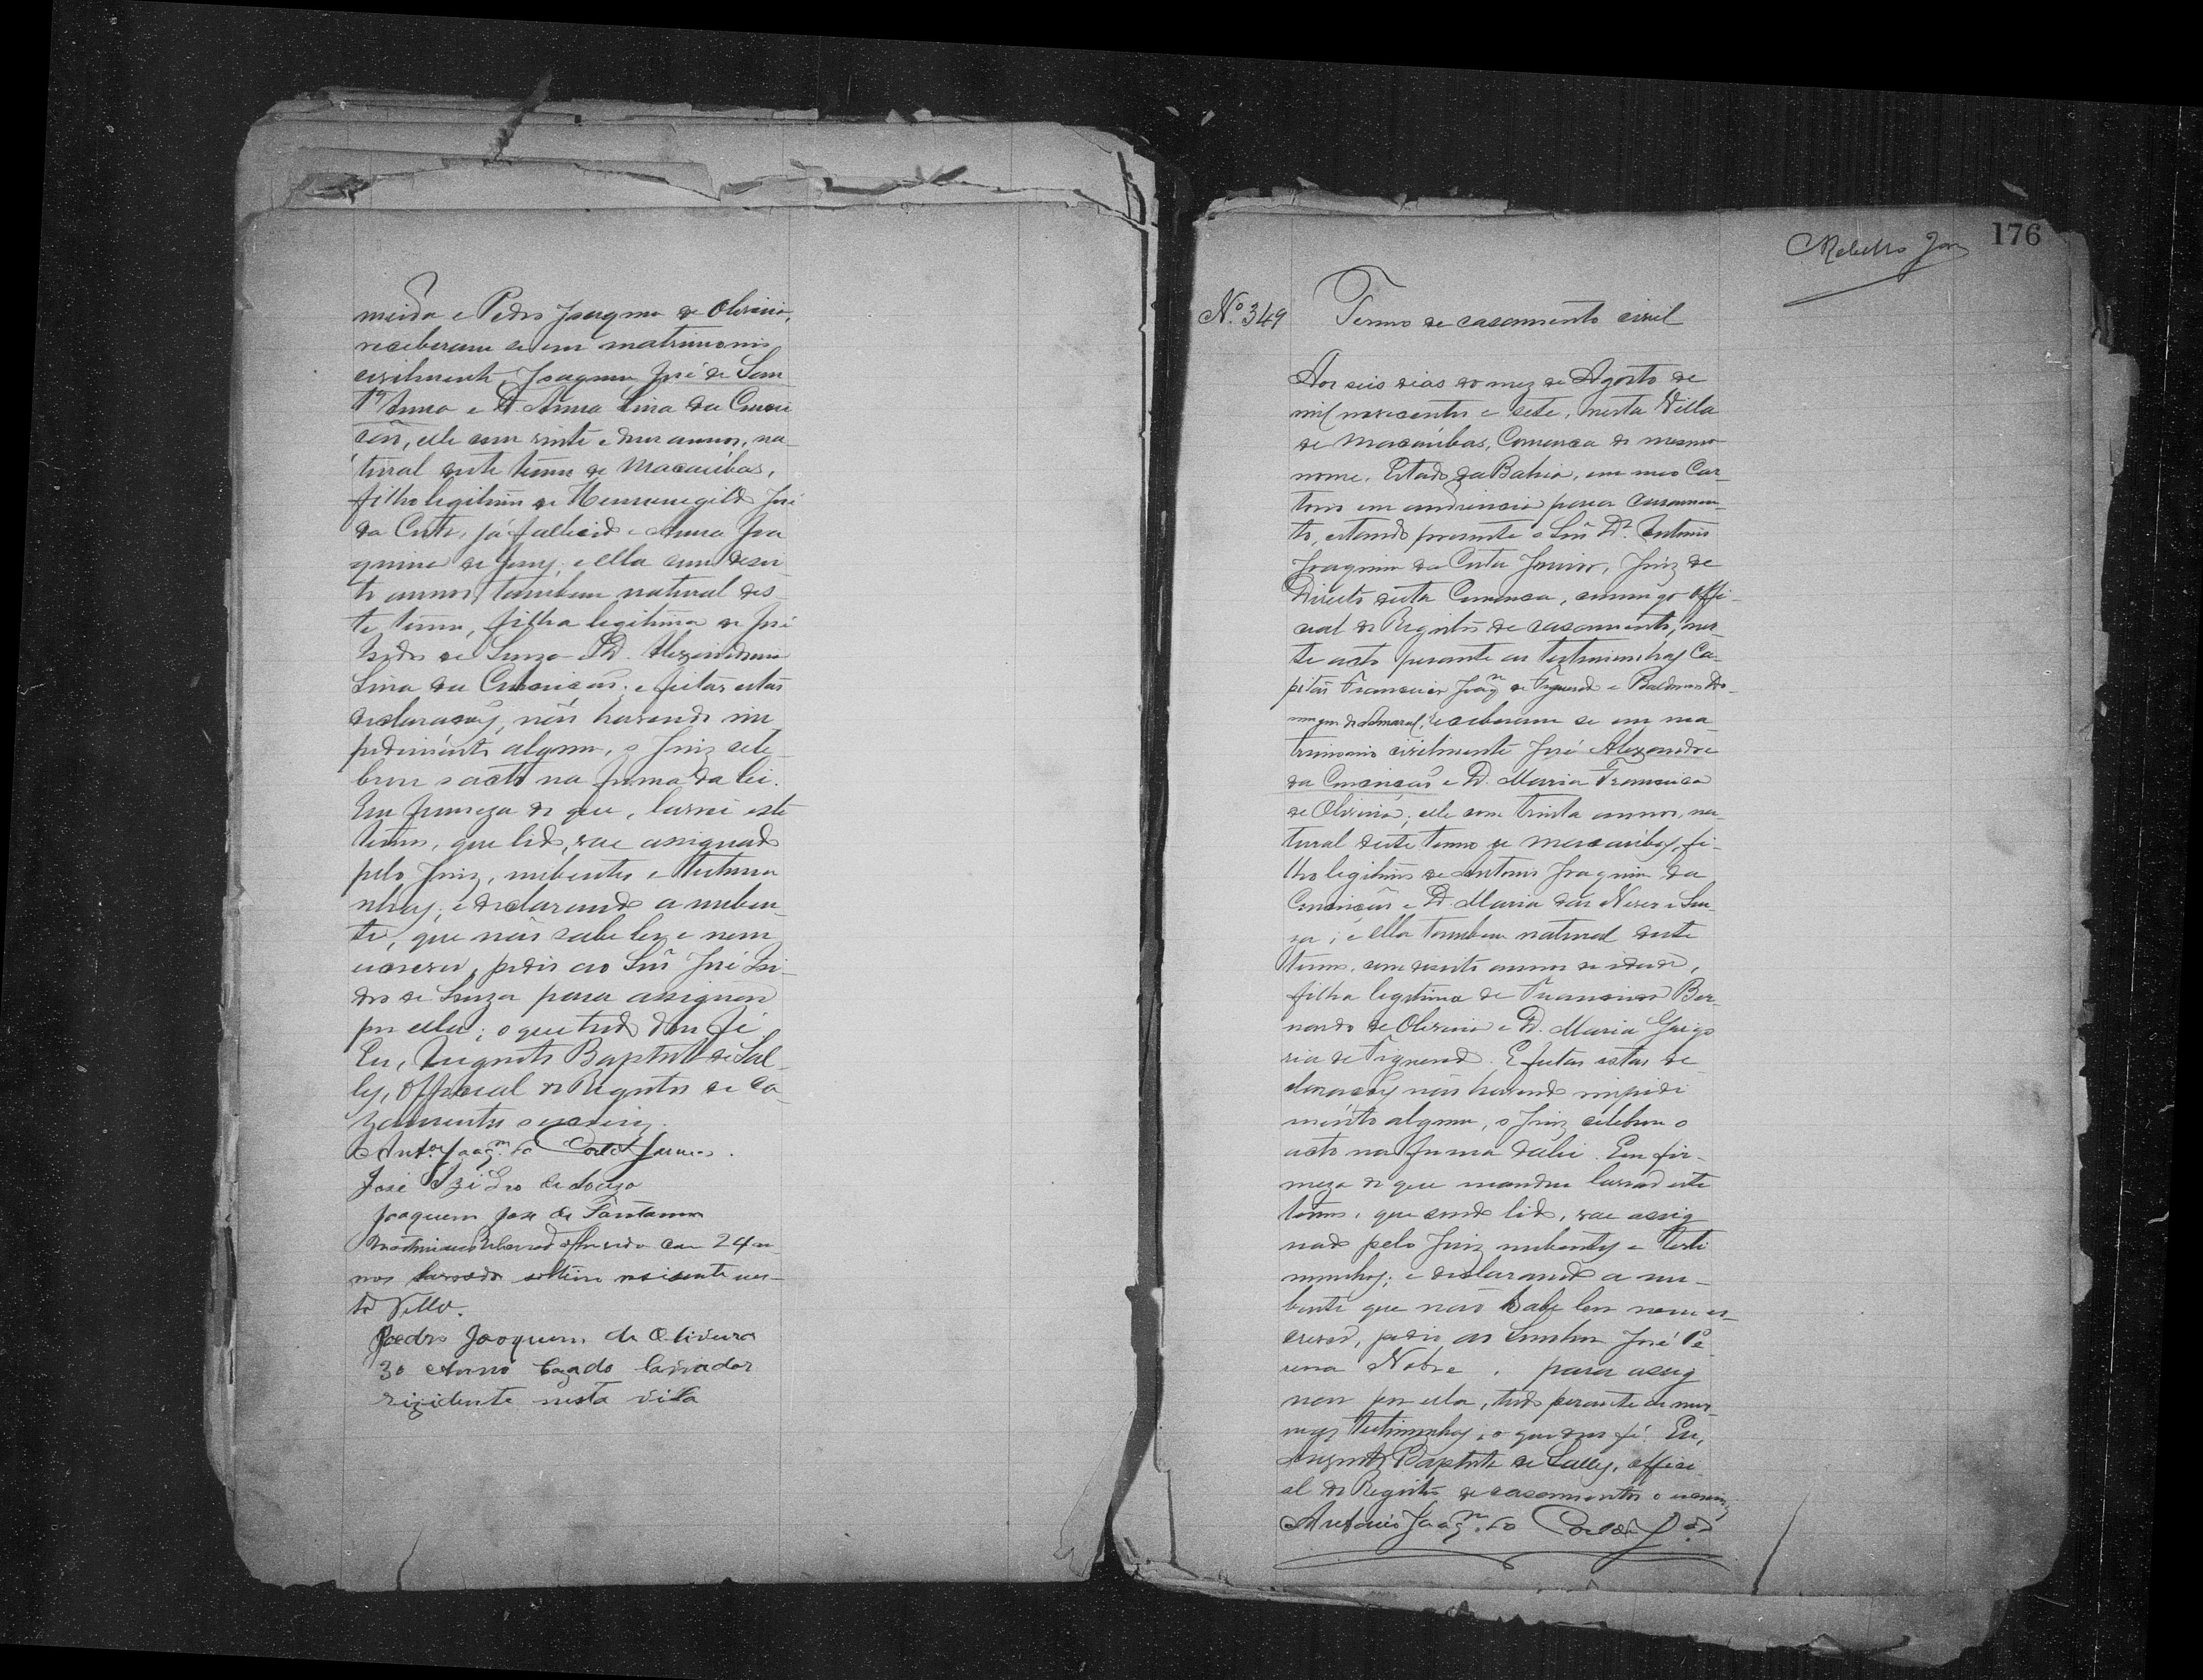 meida e Pedro Joaquim de Oliveira,
receberam se em matrimonio
civilmente, Joaquim José de San
t'Anna e D. Anna Lina da Concei
ção, elle com vinte e dous annos, na-
tural deste termo de Macaúbas,
filho legitimo de Hermenegildo José
da Costa, já fallecido e Anna Joa
quina de Jesus; e ella com desoi
to annos, tambem natural des-
te termo, filha legitima de José
Izidro de Souza e D. Alexandrina
Lina da Conceição; e feitas estas
declarações, não havendo im
pedimento algum, o Juiz cele
brou o acto na forma da lei.
Em firmeza do que, lavrei este
termo, que lido, vae assignado
pelo Juiz, nubentes e testemu
nhas; e declarando a nuben-
te, que não sabe ler e nem
escrever, pedio ao Snr José Izi-
dro de Souza para assignar
por ella; o que tudo dou fé
Eu, Augusto Baptista de Sal-
les, Official do Registro de ca-
zamentos o escrevi.
Antº Joaqm da Costa Junior.
José Izidro de Souza
Joaquim José de Santanna
com 24 an-
nos lavrador solteiro residente nes-
ta Villa.
Pedro Joaquim de Oliveira
30 Anno Cazado lavrador
rizidente nesta villa
176
Nº 349
Termo de casamento civil
Aos seis dias do mez de Agosto de
mil novecentos e sete, nesta Villa
de Macaúbas, Comarca do mesmo
nome, Estado da Bahia, em meo Car-
torio em audiencia para casamen-
to, estando presente o Snr Dr. Antonio
Joaquim da Costa Junior, Juiz de
Direito desta Comarca, commigo Offi-
cial do Registro de casamento, nes-
te acto perante as testemunhas Ca-
pitão Francisco Joaqm de Figueredo e Do-
mingues do Amaral, receberam se em ma
trimonio civilmente José Alexandre
da Conceição e D. Maria Francisca
de Oliveira; elle com trinta annos, na-
tural deste termo de Macaúbas, fi-
lho legitimo de Antonio Joaquim da
Conceição e D. Maria das Neves e Sou-
za; e ella tambem natural deste
termo, com desoito annos de idade,
filha legitima de Francisco Ber-
nardo de Oliveira e D. Maria Grigo
ria de Figueredo. E feitas estas de
clarações não havendo impedi
mento algum, o Juiz celebrou o
acto na forma da lei. Em fir-
meza do que mandou lavrar este
termo, que sendo lido, vae assig
nado pelo Juiz nubentes e teste
munhas; e declarando a nu-
bente que não sabe ler nem es-
crever, pedio ao Senhor José Pe
reira Nobre, para assig
nar por ella, tudo perante as mes-
mas testemunhas; o que dou fé. Eu,
Augusto Baptista de Salles, offici
al do Registro de casamentos o escrevi
Antonio Joaqm da Costa Jor